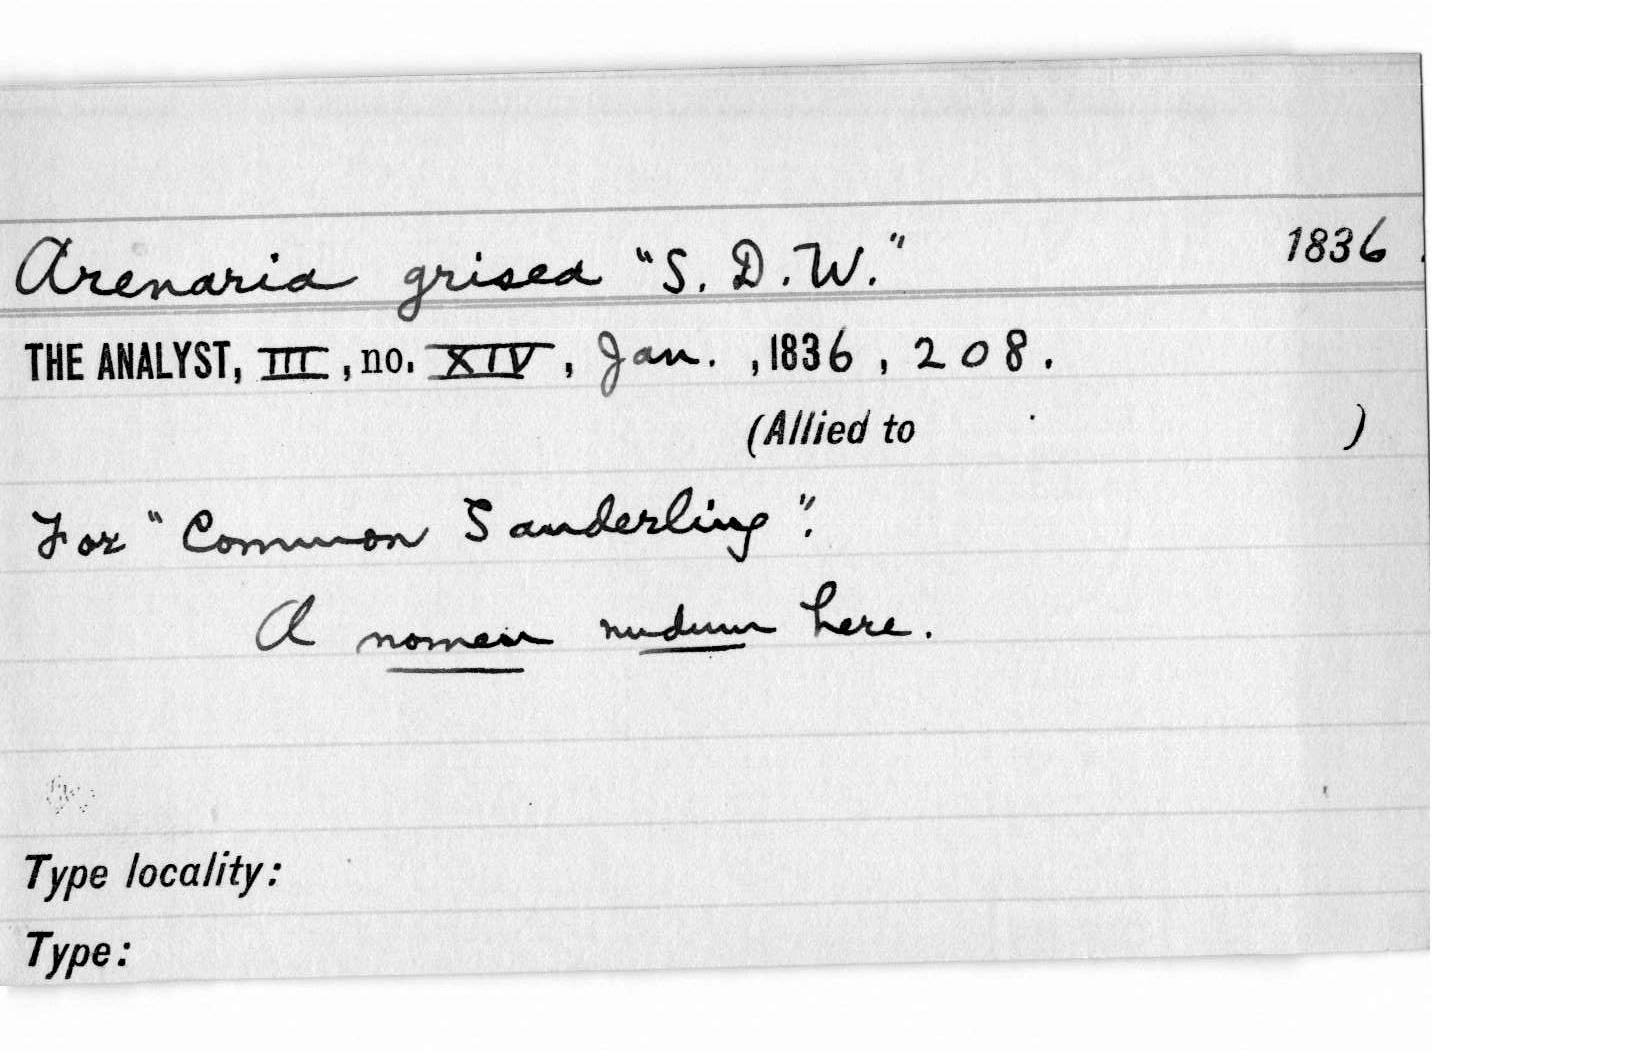 Arenaria grisea "S. D. W." 1836
THE ANALYST, III, no. XIV, Jan., 1836, 208.
(Allied to )
For "Common Sanderling".
A nomen nudum here.
Type locality:
Type: